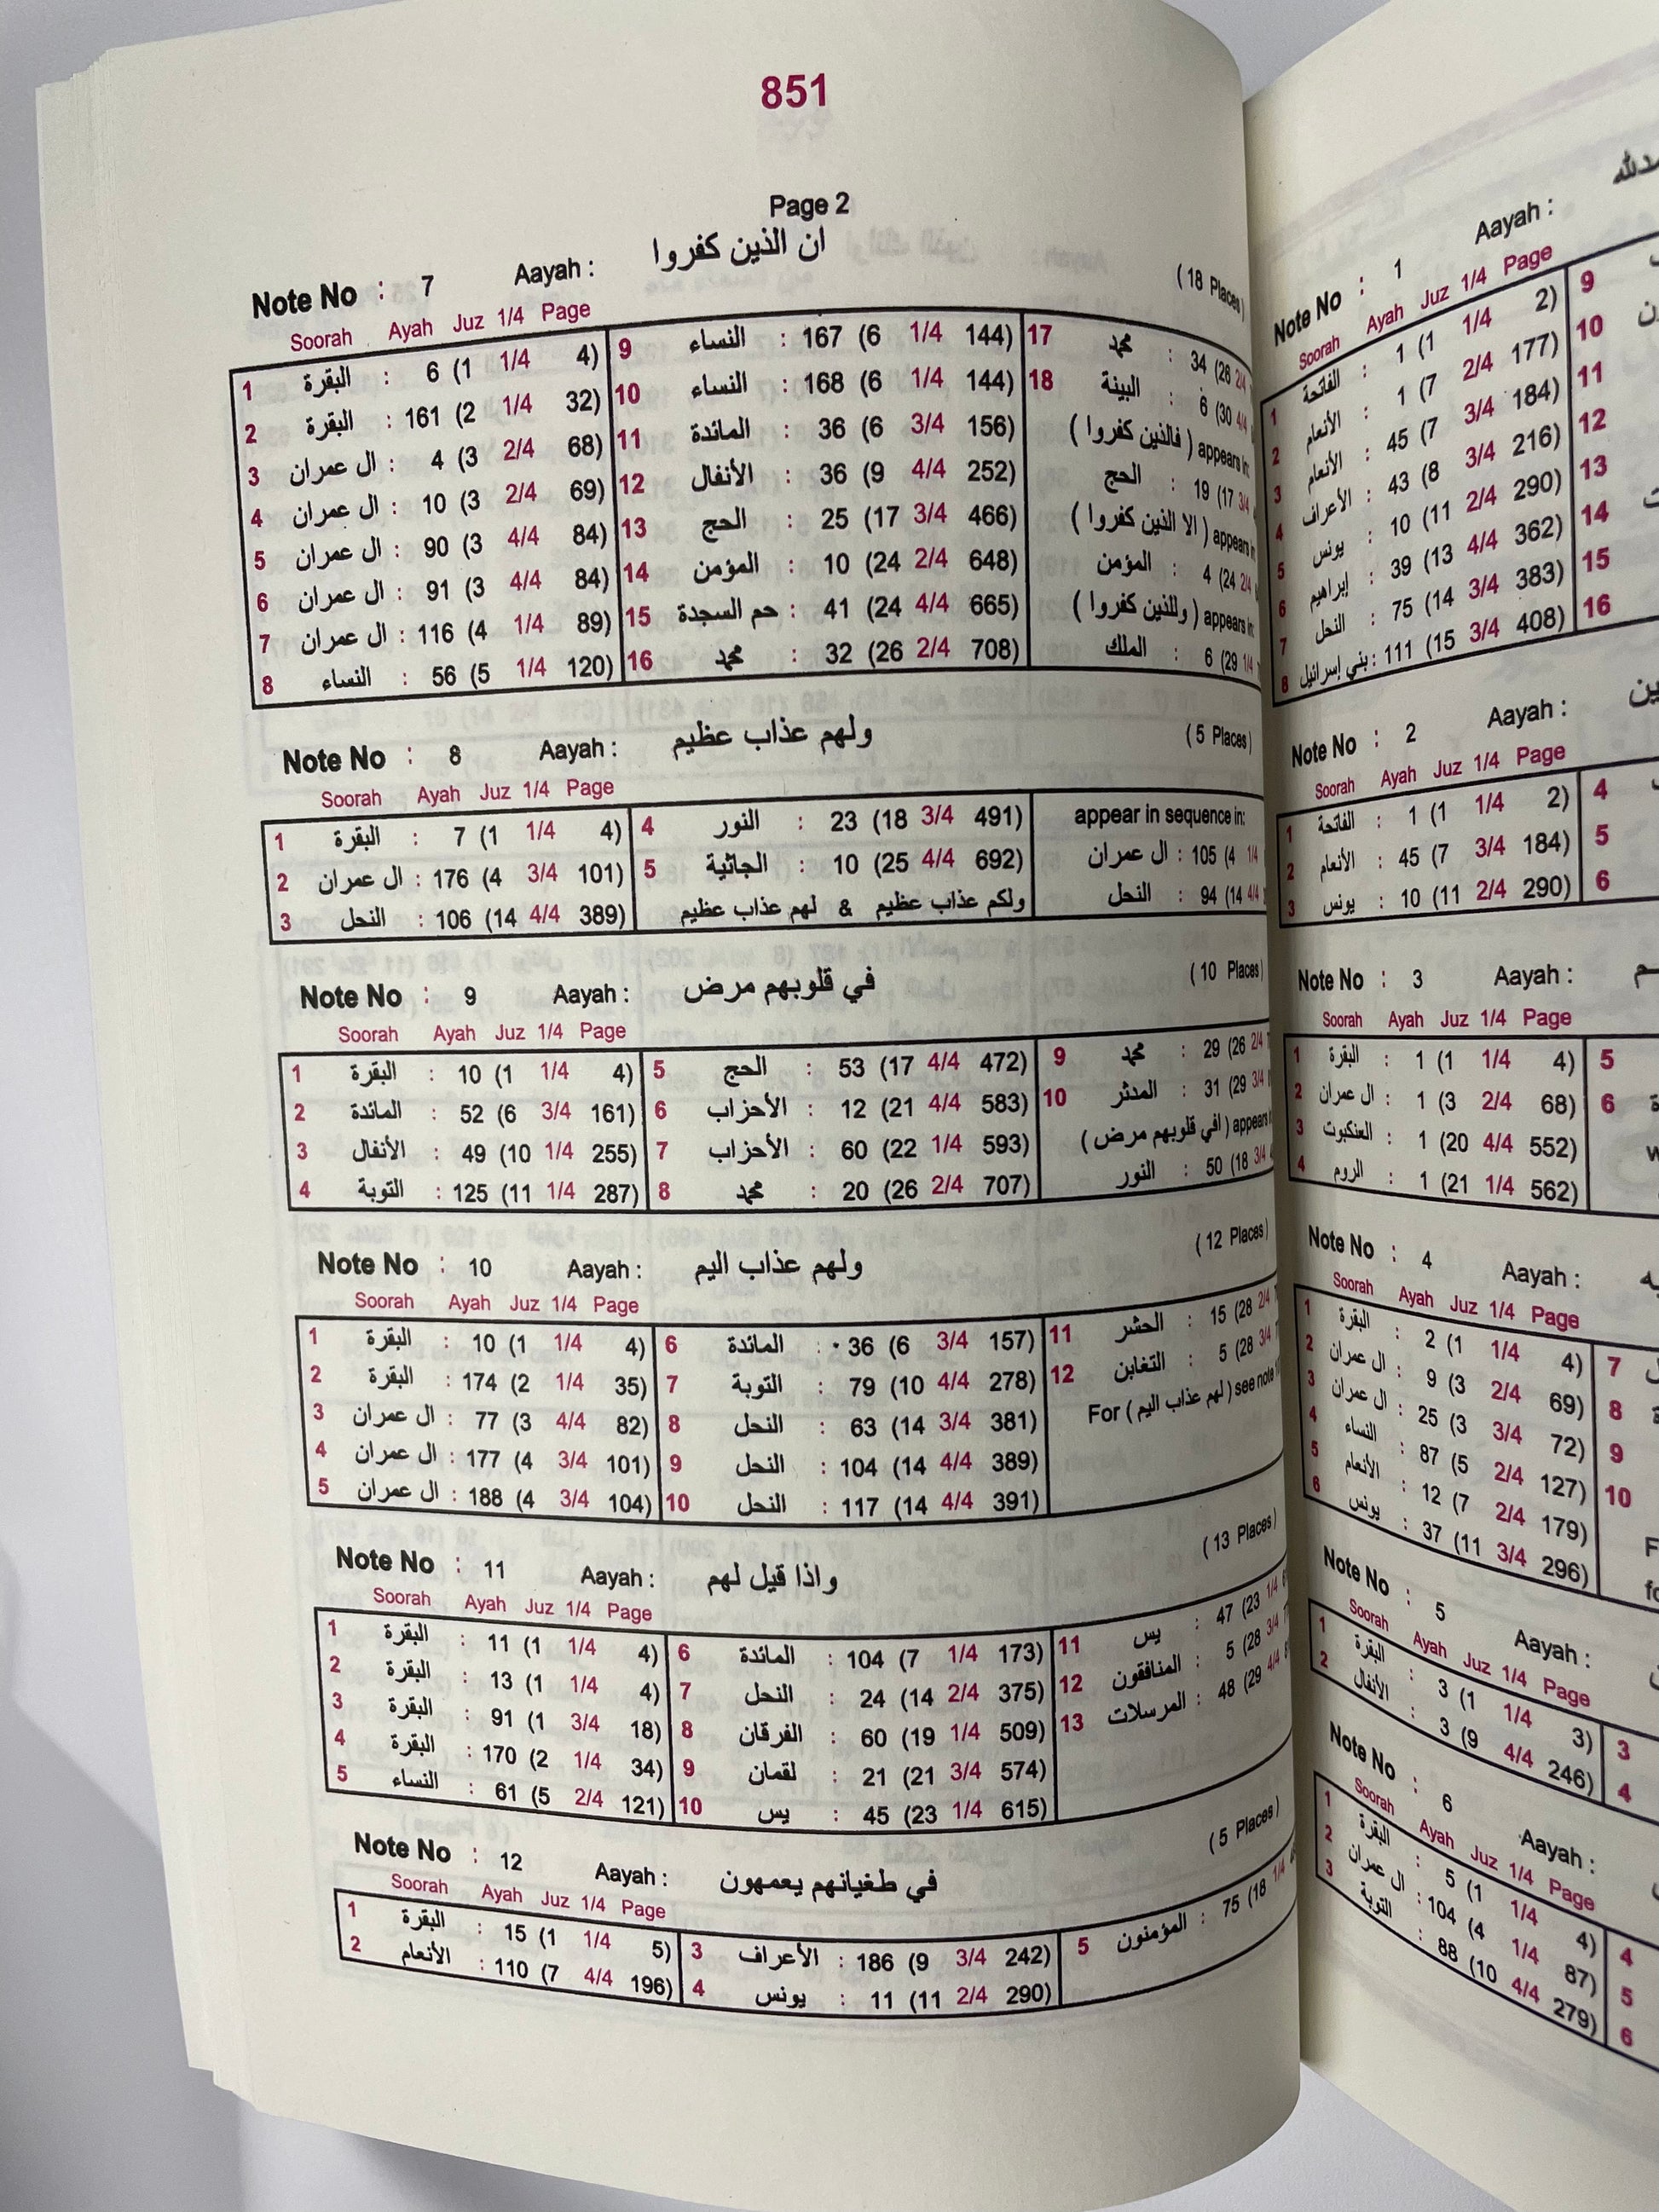 851
Page 2
Note No : 7 Aayah : ان الذين كفروا ( 18 Places)
Soorah Ayah Juz 1/4 Page
1 البقرة : 6 (1 1/4 4)
2 البقرة : 161 (2 1/4 32)
3 ال عمران : 4 (3 2/4 68)
4 ال عمران : 10 (3 2/4 69)
5 ال عمران : 90 (3 4/4 84)
6 ال عمران : 91 (3 4/4 84)
7 ال عمران : 116 (4 1/4 89)
8 النساء : 56 (5 1/4 120)
9 النساء : 167 (6 1/4 144)
10 النساء : 168 (6 1/4 144)
11 المائدة : 36 (6 3/4 156)
12 الأنفال : 36 (9 4/4 252)
13 الحج : 25 (17 3/4 466)
14 المؤمن : 10 (24 2/4 648)
15 حم السجدة : 41 (24 4/4 665)
16 محمد : 32 (26 2/4 708)
17 محمد : 34 (26 2/4
18 البينة : 6 (30 4/4
( فالذين كفروا ) appears in:
الحج : 19 (17 3/4
( الا الذين كفروا ) appears in
المؤمن : 4 (24 2/4
( وللذين كفروا ) appears in:
الملك : 6 (29 1/4
Note No : 8 Aayah : ولهم عذاب عظيم ( 5 Places)
Soorah Ayah Juz 1/4 Page
1 البقرة : 7 (1 1/4 4)
2 ال عمران : 176 (4 3/4 101)
3 النحل : 106 (14 4/4 389)
4 النور : 23 (18 3/4 491)
5 الجاثية : 10 (25 4/4 692)
ولكم عذاب عظيم & لهم عذاب عظيم
appear in sequence in:
ال عمران : 105 (4 1/4
النحل : 94 (14 4/4
Note No : 9 Aayah : في قلوبهم مرض ( 10 Places)
Soorah Ayah Juz 1/4 Page
1 البقرة : 10 (1 1/4 4)
2 المائدة : 52 (6 3/4 161)
3 الأنفال : 49 (10 1/4 255)
4 التوبة : 125 (11 1/4 287)
5 الحج : 53 (17 4/4 472)
6 الأحزاب : 12 (21 4/4 583)
7 الأحزاب : 60 (22 1/4 593)
8 محمد : 20 (26 2/4 707)
9 محمد : 29 (26 2/4
10 المدثر : 31 (29 3/4
( افي قلوبهم مرض ) appears
النور : 50 (18 3/4
Note No : 10 Aayah : ولهم عذاب اليم ( 12 Places)
Soorah Ayah Juz 1/4 Page
1 البقرة : 10 (1 1/4 4)
2 البقرة : 174 (2 1/4 35)
3 ال عمران : 77 (3 4/4 82)
4 ال عمران : 177 (4 3/4 101)
5 ال عمران : 188 (4 3/4 104)
6 المائدة : 36 (6 3/4 157)
7 التوبة : 79 (10 4/4 278)
8 النحل : 63 (14 3/4 381)
9 النحل : 104 (14 4/4 389)
10 النحل : 117 (14 4/4 391)
11 الحشر : 15 (28 2/4
12 التغابن : 5 (28 3/4
For ( لهم عذاب اليم ) see note
Note No : 11 Aayah : واذا قيل لهم ( 13 Places)
Soorah Ayah Juz 1/4 Page
1 البقرة : 11 (1 1/4 4)
2 البقرة : 13 (1 1/4 4)
3 البقرة : 91 (1 3/4 18)
4 البقرة : 170 (2 1/4 34)
5 النساء : 61 (5 2/4 121)
6 المائدة : 104 (7 1/4 173)
7 النحل : 24 (14 2/4 375)
8 الفرقان : 60 (19 1/4 509)
9 لقمان : 21 (21 3/4 574)
10 يس : 45 (23 1/4 615)
11 يس : 47 (23 1/4
12 المنافقون : 5 (28 3/4
13 المرسلات : 48 (29 4/4
Note No : 12 Aayah : في طغيانهم يعمهون ( 5 Places)
Soorah Ayah Juz 1/4 Page
1 البقرة : 15 (1 1/4 5)
2 الأنعام : 110 (7 4/4 196)
3 الأعراف : 186 (9 3/4 242)
4 يونس : 11 (11 2/4 290)
5 المؤمنون : 75 (18 1/4
Note No : 1 Aayah :
Soorah Ayah Juz 1/4 Page
1 الفاتحة : 1 (1 1/4 2)
2 الأنعام : 1 (7 2/4 177)
3 الأنعام : 45 (7 3/4 184)
4 الأعراف : 43 (8 3/4 216)
5 يونس : 10 (11 2/4 290)
6 إبراهيم : 39 (13 4/4 362)
7 النحل : 75 (14 3/4 383)
8 بني إسرائيل : 111 (15 3/4 408)
9
10
11
12
13
14
15
16
Note No : 2 Aayah :
Soorah Ayah Juz 1/4 Page
1 الفاتحة : 1 (1 1/4 2)
2 الأنعام : 45 (7 3/4 184)
3 يونس : 10 (11 2/4 290)
4
5
6
Note No : 3 Aayah :
Soorah Ayah Juz 1/4 Page
1 البقرة : 1 (1 1/4 4)
2 ال عمران : 1 (3 2/4 68)
3 العنكبوت : 1 (20 4/4 552)
4 الروم : 1 (21 1/4 562)
5
6
Note No : 4 Aayah :
Soorah Ayah Juz 1/4 Page
1 البقرة : 2 (1 1/4 4)
2 ال عمران : 9 (3 2/4 69)
3 ال عمران : 25 (3 3/4 72)
4 النساء : 87 (5 2/4 127)
5 الأنعام : 12 (7 2/4 179)
6 يونس : 37 (11 3/4 296)
7
8
9
10
Note No : 5 Aayah :
Soorah Ayah Juz 1/4 Page
1 البقرة : 3 (1 1/4 3)
2 الأنفال : 3 (9 4/4 246)
3
4
Note No : 6 Aayah :
Soorah Ayah Juz 1/4 Page
1 البقرة : 5 (1 1/4 4)
2 ال عمران : 104 (4 1/4 87)
3 التوبة : 88 (10 4/4 279)
4
5
6